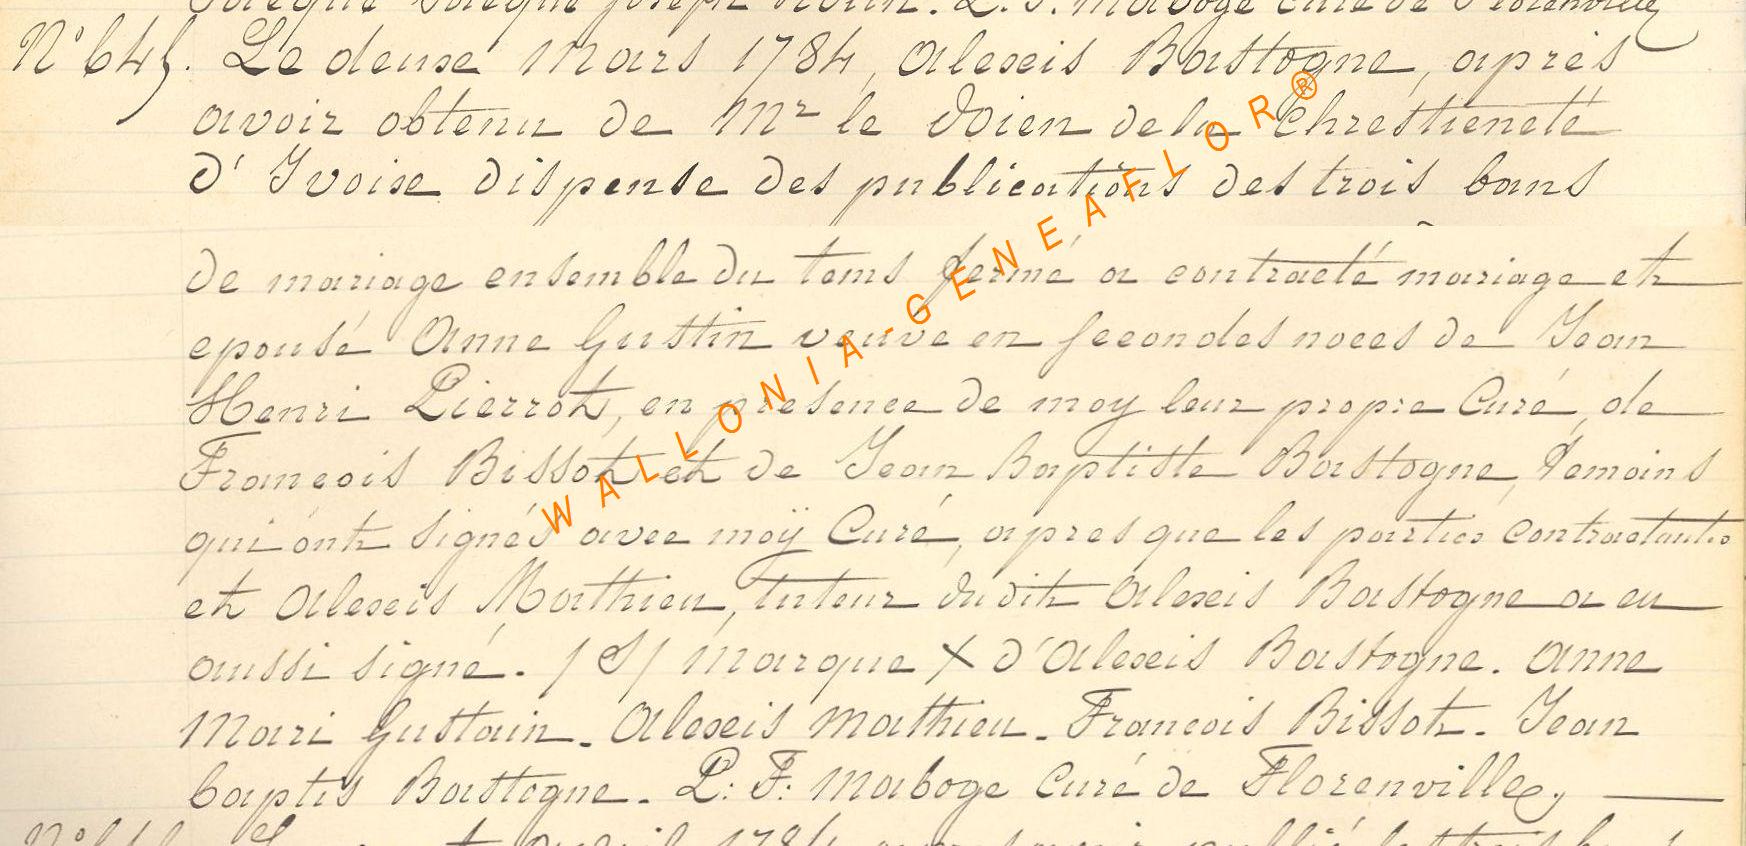 Jacque Jacque joseph L. F. Maboge Curé de Florenville
N° 645. Le deuxe Mars 1784, Alexis Bastogne, après
avoir obtenu de Mr le Doien de la Chrestieneté
d' Yvoise dispense des publications des trois bans
de mariage ensemble du tems fermé a contracté mariage et
epousé Anne Gustin veuve en secondes noces de Jean
Henri Pierrot, en presence de moy leur propre Curé, de
Francois Bissot et de Jean Baptiste Bastogne, temoins
qui ont signés avec moÿ Curé, apres que les parties contractantes
et Alexis Mathieu, tuteur dudit Alexis Bastogne a eu
aussi signé. /S/ Marque X d'Alexis Bastogne. Anne
Mari Gustain. Alexis Mathieu. Francois Bissot. Jean
baptis Bastogne. L: F: Maboge Curé de Florenville.
WALLONIA-GENEAFLOR®